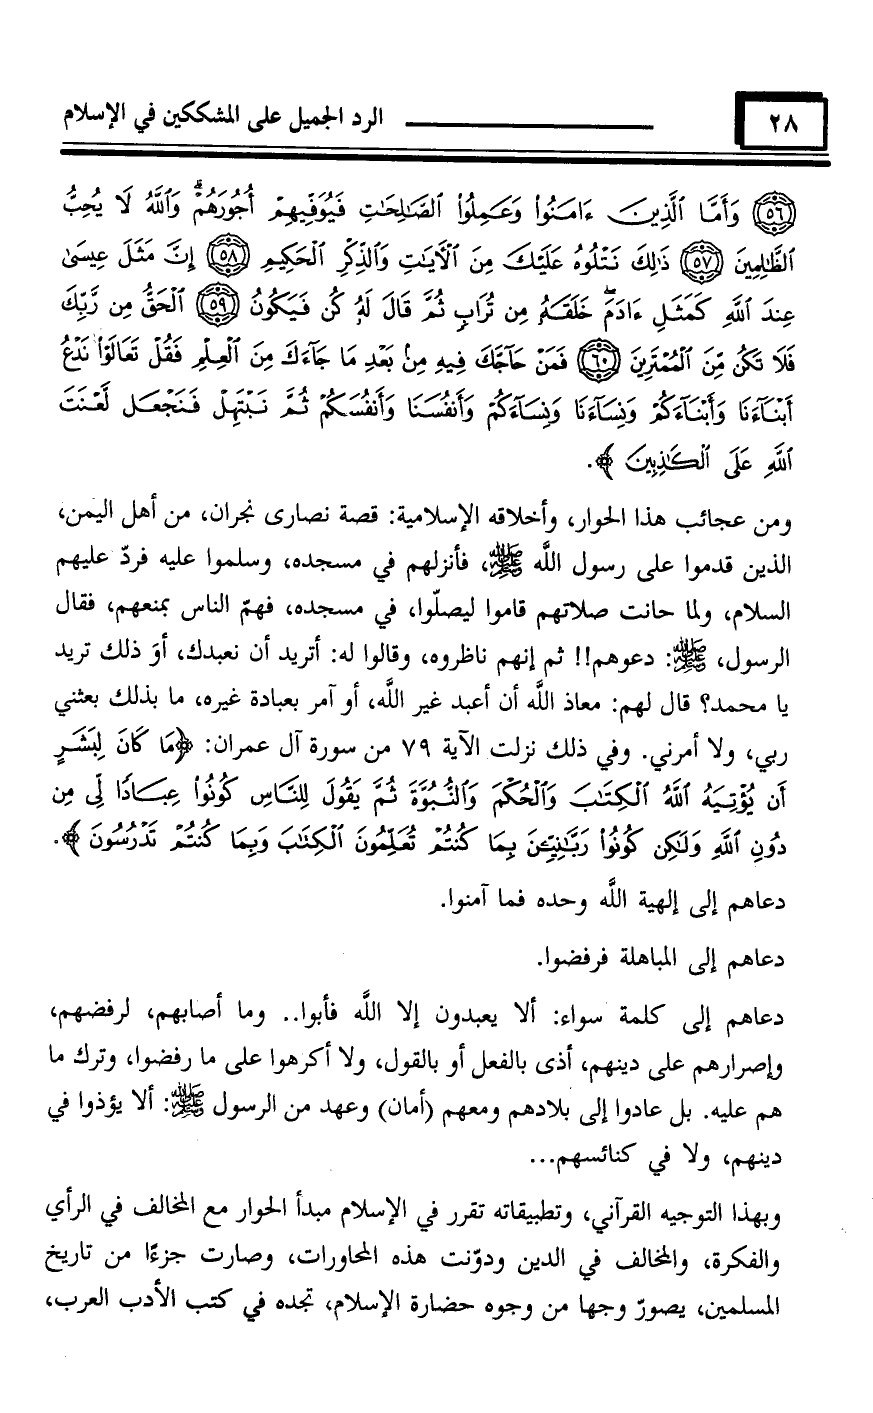 ٢٨ الرد الجميل على المشككين في الإسلام
﴿٥٦﴾ وَأَمَّا ٱلَّذِينَ ءَامَنُوا۟ وَعَمِلُوا۟ ٱلصَّـٰلِحَـٰتِ فَيُوَفِّيهِمْ أُجُورَهُمْ ۗ وَٱللَّهُ لَا يُحِبُّ
ٱلظَّـٰلِمِينَ ﴿٥٧﴾ ذَٰلِكَ نَتْلُوهُ عَلَيْكَ مِنَ ٱلْـَٔايَـٰتِ وَٱلذِّكْرِ ٱلْحَكِيمِ ﴿٥٨﴾ إِنَّ مَثَلَ عِيسَىٰ
عِندَ ٱللَّهِ كَمَثَلِ ءَادَمَ ۖ خَلَقَهُۥ مِن تُرَابٍ ثُمَّ قَالَ لَهُۥ كُن فَيَكُونُ ﴿٥٩﴾ ٱلْحَقُّ مِن رَّبِّكَ
فَلَا تَكُن مِّنَ ٱلْمُمْتَرِينَ ﴿٦٠﴾ فَمَنْ حَآجَّكَ فِيهِ مِنۢ بَعْدِ مَا جَآءَكَ مِنَ ٱلْعِلْمِ فَقُلْ تَعَالَوْا۟ نَدْعُ
أَبْنَآءَنَا وَأَبْنَآءَكُمْ وَنِسَآءَنَا وَنِسَآءَكُمْ وَأَنفُسَنَا وَأَنفُسَكُمْ ثُمَّ نَبْتَهِلْ فَنَجْعَل لَّعْنَتَ
ٱللَّهِ عَلَى ٱلْكَـٰذِبِينَ ﴾.
ومن عجائب هذا الحوار، وأخلاقه الإسلامية: قصة نصارى نجران، من أهل اليمن،
الذين قدموا على رسول اللَّه ﷺ، فأنزلهم في مسجده، وسلموا عليه فردّ عليهم
السلام، ولما حانت صلاتهم قاموا ليصلّوا، في مسجده، فهمّ الناس بمنعهم، فقال
الرسول، ﷺ: دعوهم!! ثم إنهم ناظروه، وقالوا له: أتريد أن نعبدك، أوَ ذلك تريد
يا محمد؟ قال لهم: معاذ اللَّه أن أعبد غير اللَّه، أو آمر بعبادة غيره، ما بذلك بعثني
ربي، ولا أمرني. وفي ذلك نزلت الآية ٧٩ من سورة آل عمران: ﴿مَا كَانَ لِبَشَرٍ
أَن يُؤْتِيَهُ ٱللَّهُ ٱلْكِتَـٰبَ وَٱلْحُكْمَ وَٱلنُّبُوَّةَ ثُمَّ يَقُولَ لِلنَّاسِ كُونُوا۟ عِبَادًا لِّى مِن
دُونِ ٱللَّهِ وَلَـٰكِن كُونُوا۟ رَبَّـٰنِيِّـۧنَ بِمَا كُنتُمْ تُعَلِّمُونَ ٱلْكِتَـٰبَ وَبِمَا كُنتُمْ تَدْرُسُونَ ﴾.
دعاهم إلى إلهية اللَّه وحده فما آمنوا.
دعاهم إلى المباهلة فرفضوا.
دعاهم إلى كلمة سواء: ألا يعبدون إلا اللَّه فأبوا.. وما أصابهم، لرفضهم،
وإصرارهم على دينهم، أذى بالفعل أو بالقول، ولا أكرهوا على ما رفضوا، وترك ما
هم عليه. بل عادوا إلى بلادهم ومعهم (أمان) وعهد من الرسول ﷺ: ألا يؤذوا في
دينهم، ولا في كنائسهم...
وبهذا التوجيه القرآني، وتطبيقاته تقرر في الإسلام مبدأ الحوار مع المخالف في الرأي
والفكرة، والمخالف في الدين ودوّنت هذه المحاورات، وصارت جزءًا من تاريخ
المسلمين، يصورّ وجها من وجوه حضارة الإسلام، تجده في كتب الأدب العرب،